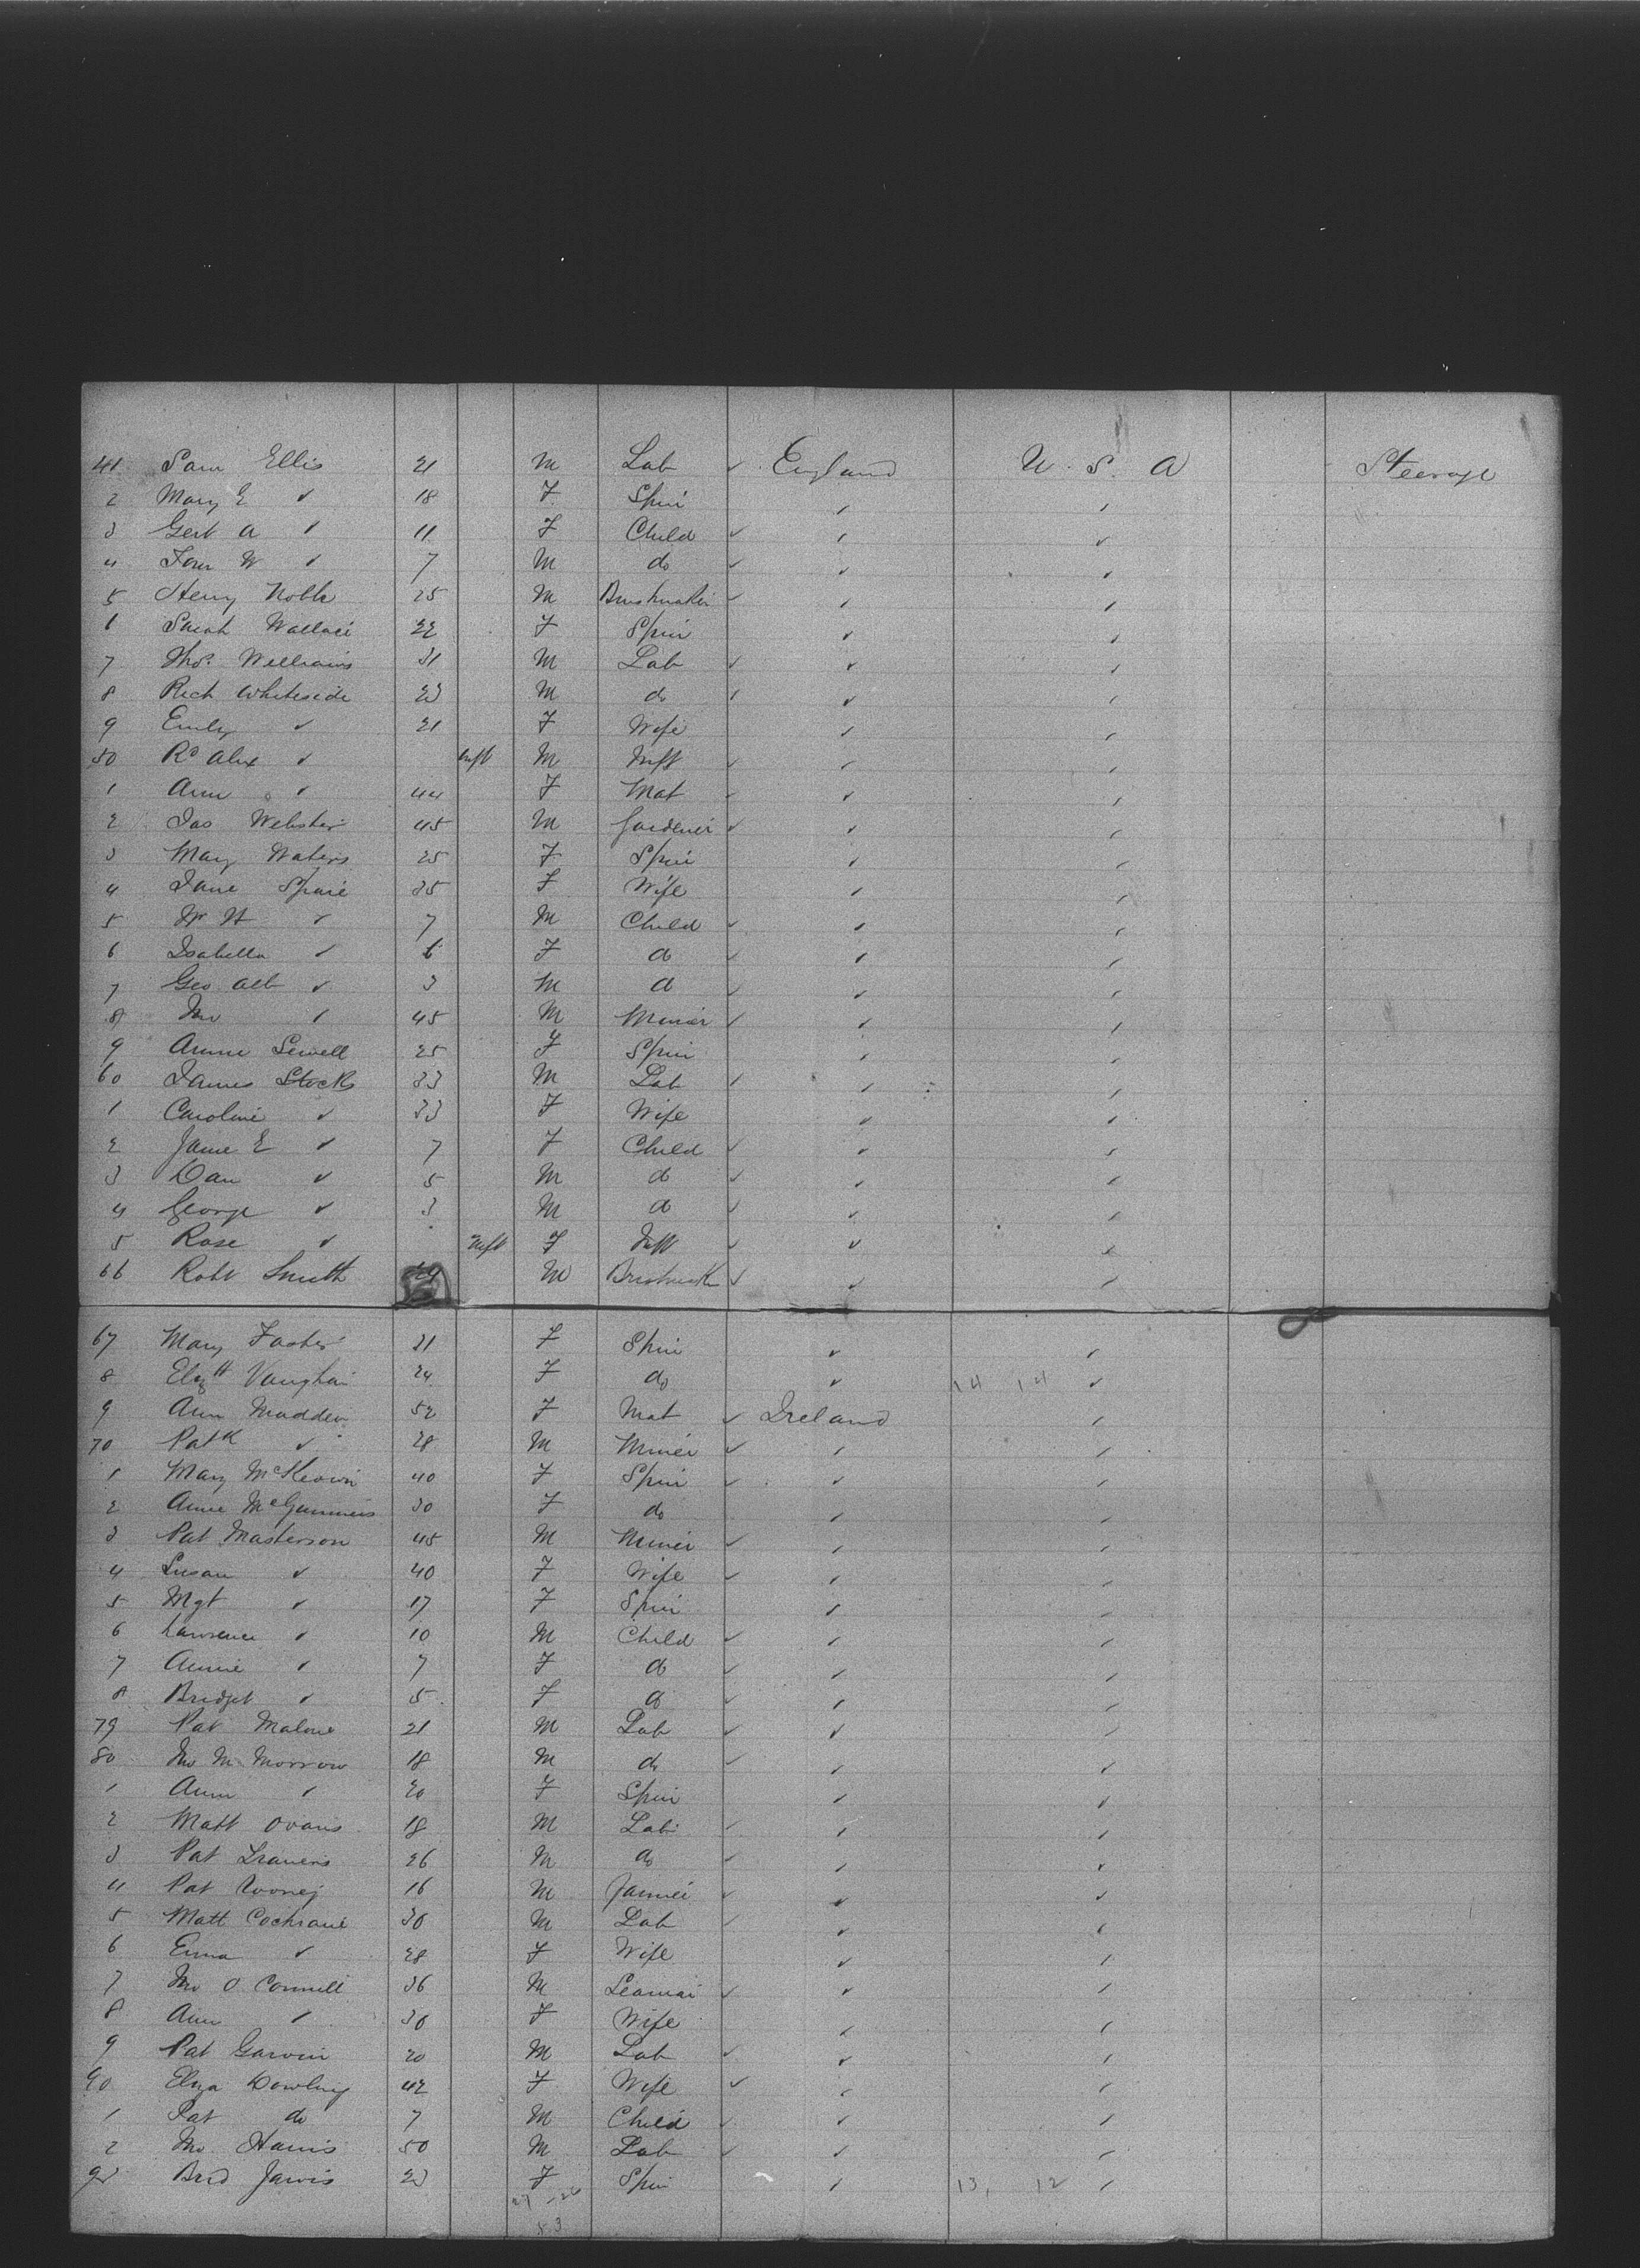 41 Sam Ellis 21 M Lab ✓ England U. S. A Steerage
2 Mary E ✓ 18 F Spin ✓ ✓
3 Gert A ✓ 11 F Child ✓ ✓ ✓
4 W ✓ 7 M do ✓ ✓ ✓
5 Henry Noble 25 M Brushmaker ✓ ✓ ✓
6 Sarah Wallace 22 F Spin ✓ ✓
7 Thos. Williams 31 M Lab ✓ ✓ ✓
8 Rich Whiteside 23 M do ✓ ✓ ✓
9 Emily ✓ 21 F Wife ✓ ✓
50 Rd Alex ✓ Inft M Inft ✓ ✓ ✓
1 Ann ✓ 44 F Mat ✓ ✓ ✓
2 Jas Webster 45 M Gardener ✓ ✓ ✓
3 Mary Waters 25 F Spin ✓ ✓
4 Jane 35 F Wife ✓ ✓
5 Wm H ✓ 7 M Child ✓ ✓ ✓
6 Isabella ✓ 6 F do ✓ ✓ ✓
7 Geo Alb ✓ 3 M do ✓ ✓ ✓
8 Jno ✓ 45 M Miner ✓ ✓ ✓
9 Annie Sewell 25 F Spin ✓ ✓
60 James Stocks 33 M Lab ✓ ✓ ✓
1 Caroline ✓ 33 F Wife ✓ ✓
2 Jane E ✓ 7 F Child ✓ ✓ ✓
3 Dan ✓ 5 M do ✓ ✓ ✓
4 George ✓ 3 M do ✓ ✓ ✓
5 Rose ✓ Inft F Inft ✓ ✓ ✓
66 Robt Smith M ✓ ✓ ✓
67 Mary Foster 21 F Spin ✓ ✓
8 Elizth Vaughan 24 F do ✓ 14 14 ✓
9 Ann Madden 52 F Mat ✓ Ireland ✓
70 Patk ✓ 28 M Miner ✓ ✓ ✓
1 Mary McKeown 40 F Spin ✓ ✓ ✓
2 Annie McGuinness 30 F do ✓ ✓
3 Pat Masterson 45 M Miner ✓ ✓ ✓
4 Susan ✓ 40 F Wife ✓ ✓ ✓
5 Mgt ✓ 17 F Spin ✓ ✓
6 Lawrence ✓ 10 M Child ✓ ✓ ✓
7 Annie ✓ 7 F do ✓ ✓ ✓
8 Bridget ✓ 5 F do ✓ ✓ ✓
79 Pat Malone 21 M Lab ✓ ✓ ✓
80 Jno McMorrow 18 M do ✓ ✓ ✓
1 Ann ✓ 20 F Spin ✓ ✓
2 Matt Ovans 18 M Lab ✓ ✓ ✓
3 Pat Travers 26 M do ✓ ✓ ✓
4 Pat Rooney 16 M Farmer ✓ ✓ ✓
5 Matt Cochrane 30 M Lab ✓ ✓ ✓
6 Emma ✓ 28 F Wife ✓ ✓
7 Jno O'Connell 36 M Seaman ✓ ✓ ✓
8 Ann ✓ 30 F Wife ✓ ✓
9 Pat Garvin 20 M Lab ✓ ✓ ✓
90 Eliza Dowling 42 F Wife ✓ ✓ ✓
1 Pat do 7 M Child ✓ ✓ ✓
2 Jno Harris 50 M Lab ✓ ✓ ✓
93 Brid Jarvis 23 F Spin ✓ 13, 12 ✓
27 - 26
53